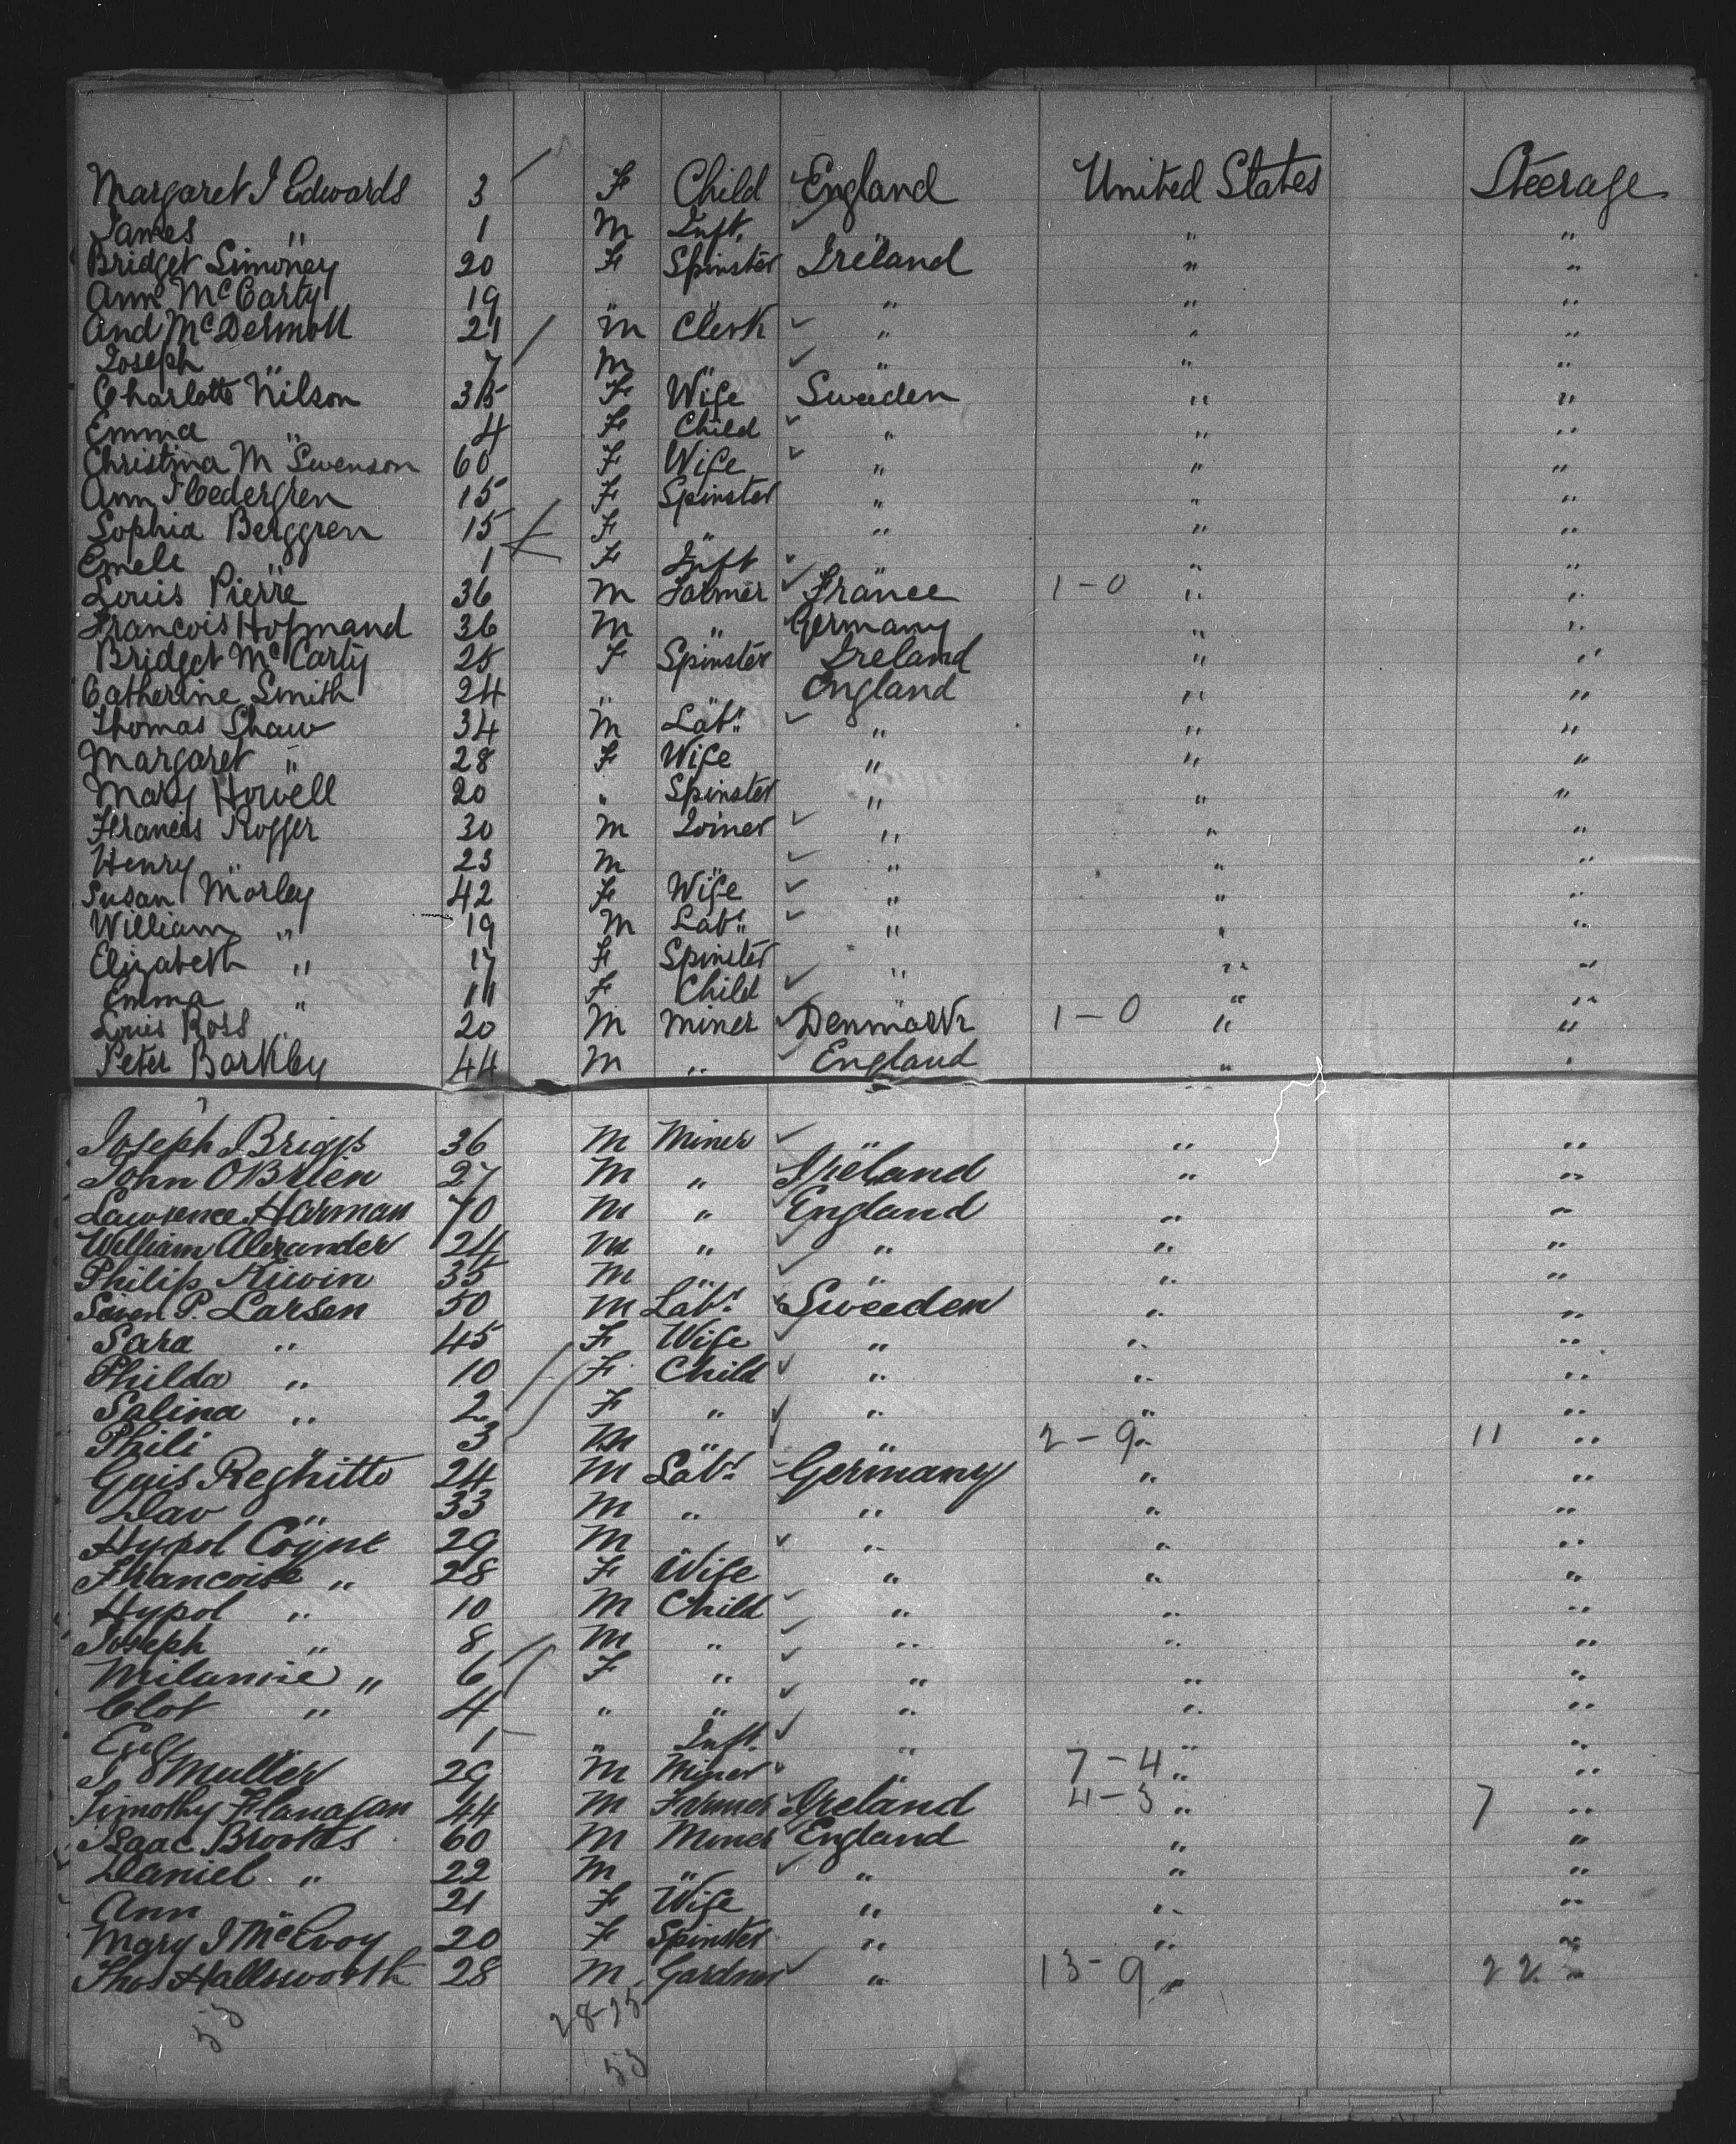 Margaret J Edwards 3 F Child England United States Steerage
James " 1 M Inft. " " "
Bridget Simoney 20 F Spinster Ireland " "
Ann McCarty 19 " " " " "
And McDermott 21 M Clerk " " "
Joseph " 7 M " " " "
Charlotte Nilson 35 F Wife Sweeden " "
Emma " 4 F Child " " "
Christina M Swenson 60 F Wife " " "
Ann J Cedergren 15 F Spinster " " "
Sophia Berggren 15 F " " " "
Emele " 1 F Inft " " "
Louis Pierre 36 M Farmer France 1-0 " "
Francois Hofmand 36 M " Germany " "
Bridget McCarty 25 F Spinster Ireland " "
Catherine Smith 24 " " England " "
Thomas Shaw 34 M Labr " " "
Margaret " 28 F Wife " " "
Mary Howell 20 " Spinster " " "
Francis Roffer 30 M Joiner " " "
Henry " 23 M " " " "
Susan Morley 42 F Wife " " "
William " 19 M Labr " " "
Elizabeth " 17 F Spinster " " "
Emma " 11 F Child " " "
Louis Ross 20 M Miner Denmark 1-0 " "
Peter Barkley 44 M " England " "
Joseph Briggs 36 M Miner " " "
John OBrien 27 M " Ireland " "
Lawrence Harman 40 M " England " "
William Alexander 24 M " " " "
Philip Kiwin 35 M " " " "
Swen P. Larsen 50 M Labr Sweeden " "
Sara " 45 F Wife " " "
Philda " 10 F Child " " "
Salina " 2 F " " " "
Phili " 3 M " " 2-9 " 11 "
Guis Reghitto 24 M Labr Germany " "
Dav " 33 M " " " "
Hypol Coyne 29 M " " " "
Francoise " 28 F Wife " " "
Hypol " 10 M Child " " "
Joseph " 8 M " " " "
Milanie " 6 F " " " "
Clot " 4 " " " " "
" 1 " Inft. " " "
J Muller 29 M Miner " 7-4 " "
Timothy Flanagan 44 M Farmer Ireland 4-3 " 7 "
Isaac Brookes 60 M Miner England " "
Daniel " 22 M " " " "
Ann " 21 F Wife " " "
Mary J McEvoy 20 F Spinster " " "
Thos Hallsworth 28 M Gardner " 13-9 " 22 "
53 28-25
53